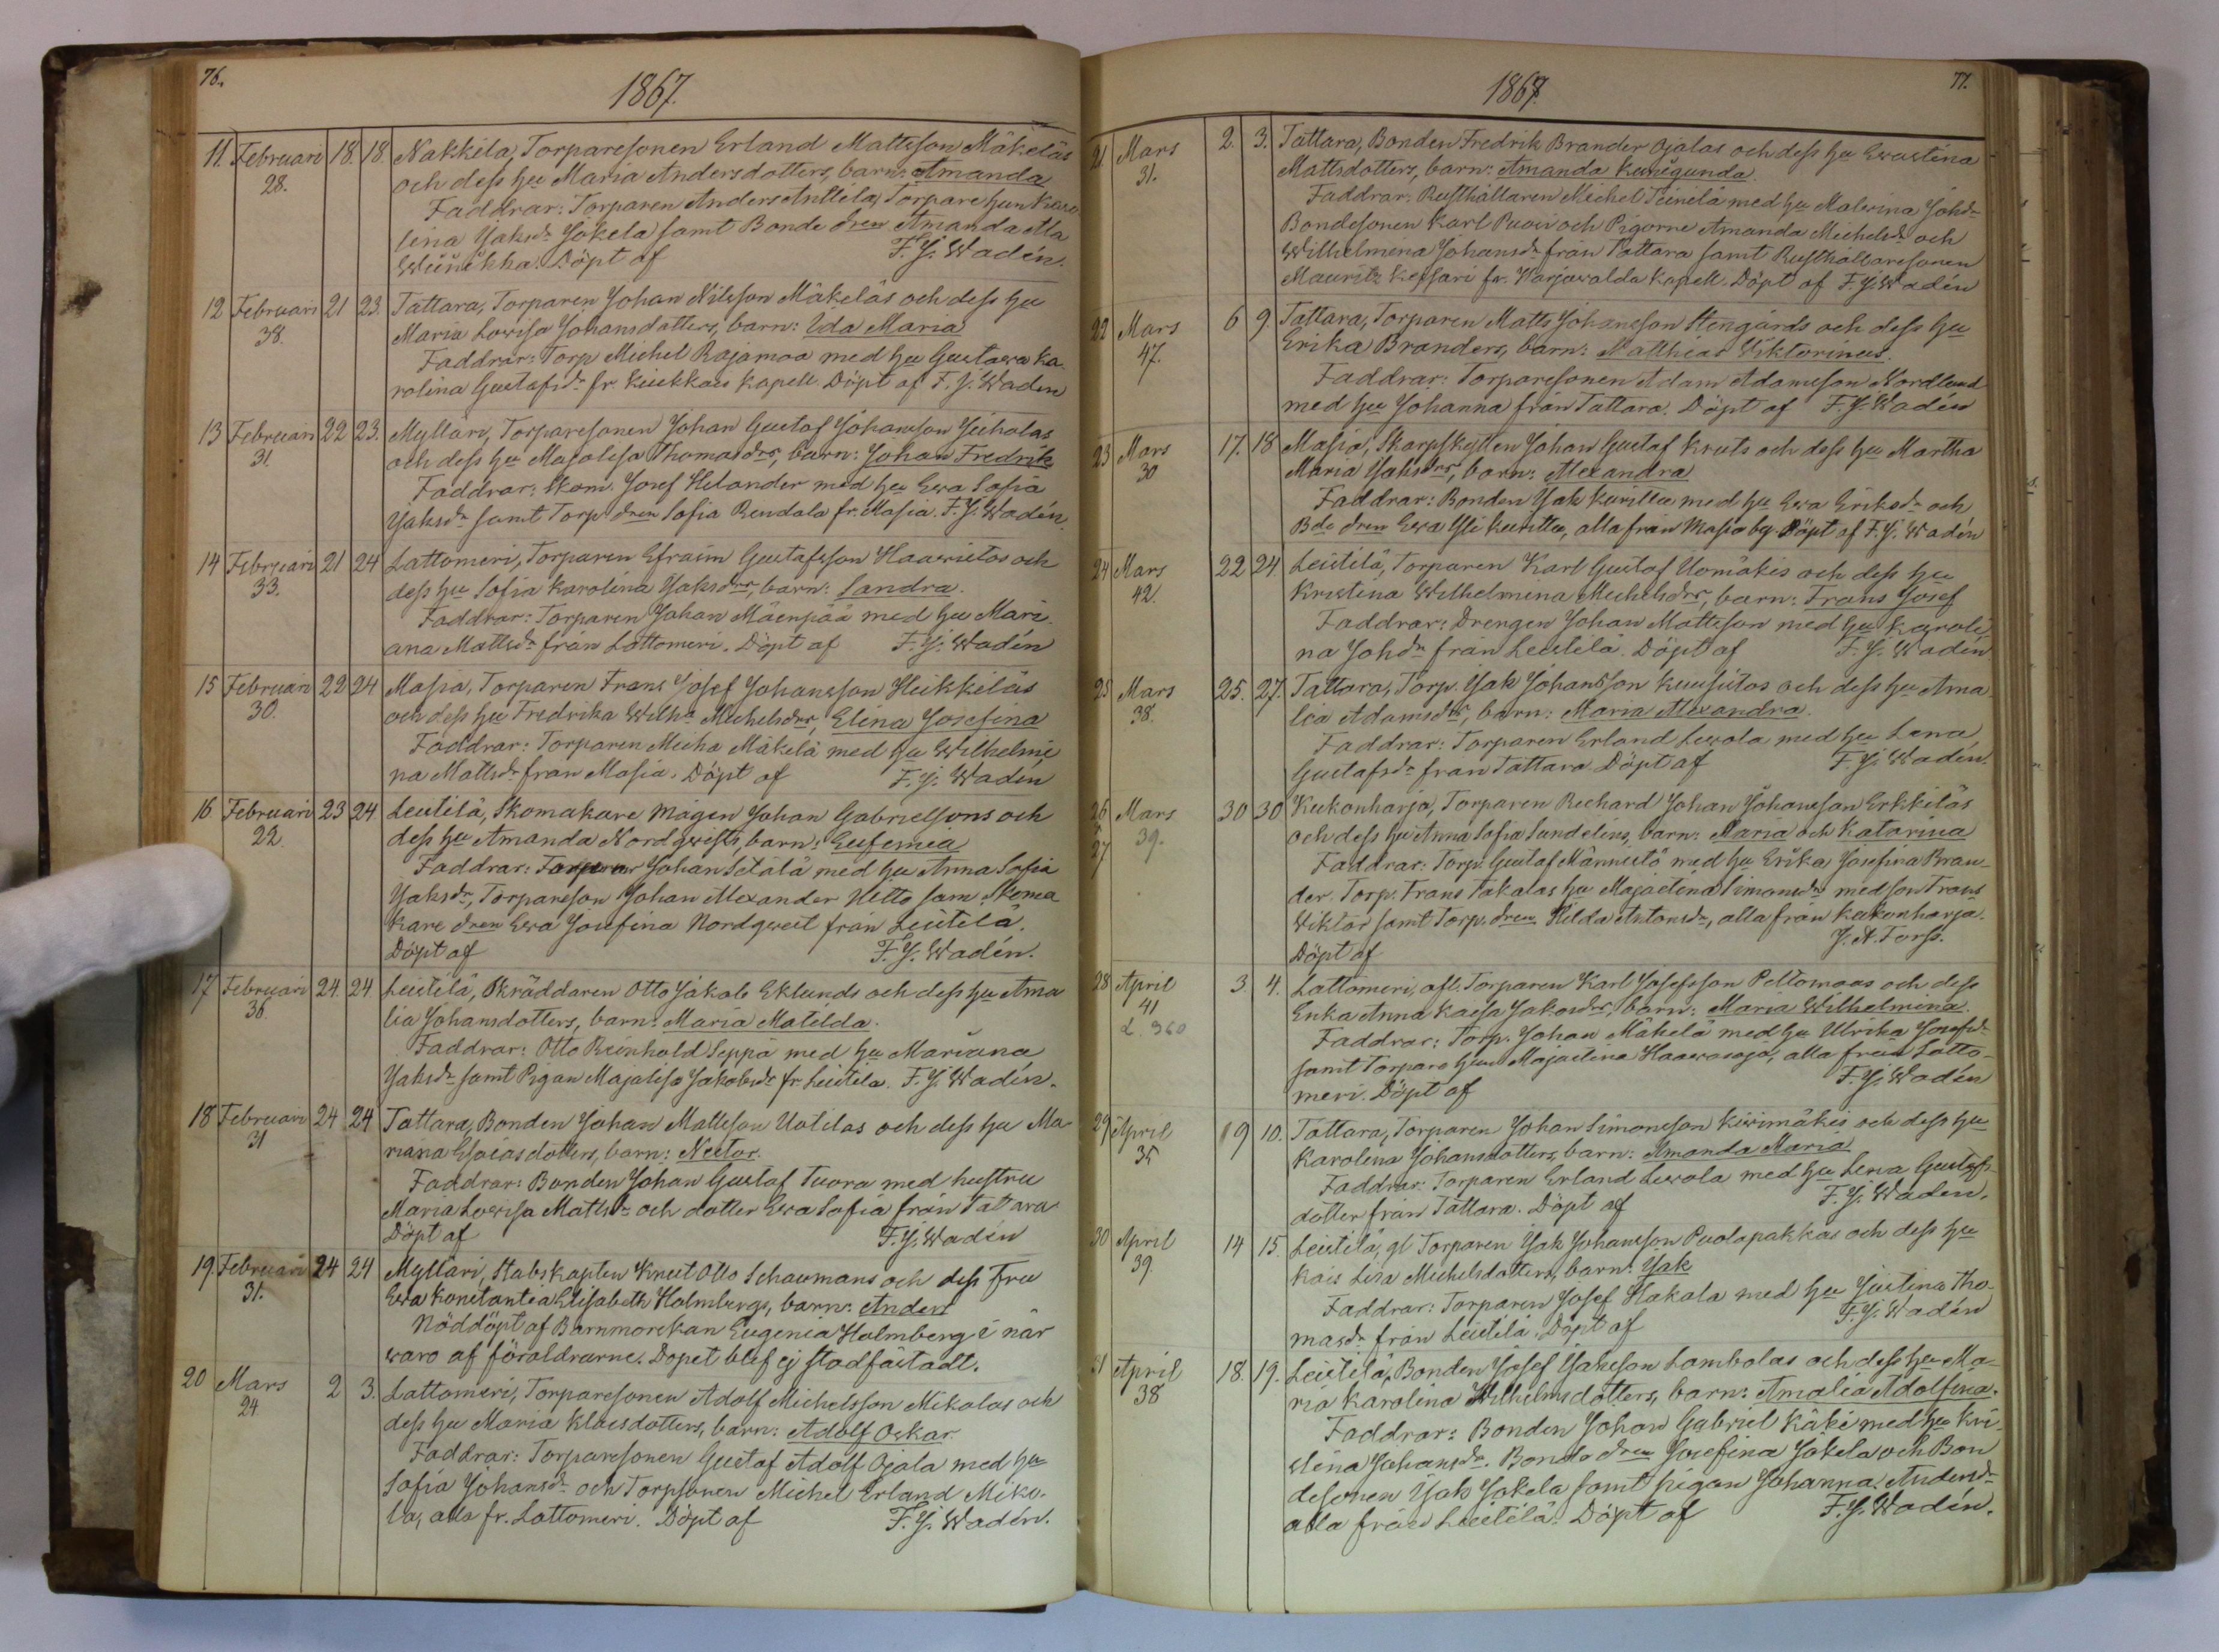 76.
1867.
11. Februari 18. 18. Nakkila, Torparesonen Erland Mattsson Mäkeläs
28. och dess hu Maria Andersdotters, barn: Amanda
Faddrar: Torparen Anders Anttila, Torpare hun Karo
lina Jaksdr Jokela samt Bonde dren Amanda Ala
Döpt af F. J. Wadén.
12 Februari 21 23. Tattara, Torparen Johan Nilsson Mäkeläs och dess hu
38. Maria Lovisa Johansdotters, barn: Ida Maria
Faddrar: Torp Michel Rajamaa med hu Gustava Ka
rolina Gustafsdr fr. Kiukkais Kapell. Döpt af F. J. Wadén
13 Februari 22 23. Mylläri, Torparesonen Johan Gustaf Johansson
31. och dess hu Majalisa Thomasdrs, barn: Johan Fredrik
Faddrar: Skom. Josef Helander med hu Ewa Sofia
Jaksdr samt Torp. dren Sofia Rendala fr. Masia. F. J. Wadén.
14 Februari 21 24 Lattomeri, Torparen Efraim Gustafsson Haavistos och
33. dess hu Sofia Karolina Jaksdrs, barn: Sandra.
Faddrar: Torparen Johan Mäenpää med hu Mari
ana Mattsdr från Lattomeri. Döpt af F. J. Wadén
15 Februari 22 24 Masia, Torparen Frans Josef Johansson Heikkiläs
30. och dess hu Fredrika Wilha Michelsdrs, Elina Josefina
Faddrar: Torparen Micha Mäkelä med hu Wilhelmi
na Mattsdr från Masia. Döpt af F. J. Wadén
16 Februari 23 24. Leistilä, Skomakare mågen Johan Gabrielssons och
22. dess hu Amanda Nordqwists, barn: Eufemia
Faddrar: Torparen Johan Setälä med hu Anna Sofia
Jaksdr, Torpareson Johan Alexander Uitto sam. Skoma
kare dren Ewa Josefina Nordqwist från Leistilä.
Döpt af F. J. Wadén.
17 Februari 24. 24. Leistilä, Skräddaren Otto Jakob Eklunds och dess hu Ama
36. lia Johansdotters, barn: Maria Matilda.
Faddrar: Otto Reinhold Seppä med hu Mariana
Jaksdr samt Pigan Majalisa Jakobsdr fr. Leistilä. F. J. Wadén.
18 Februari 24 24 Tattara, Bonden Johan Mattsson Uotilas och dess hu Ma
31 riana Esaiasdotters, barn: Nestor.
Faddrar: Bonden Johan Gustaf Tuora med hustru
Maria Lovisa Mattsdr och dotter Ewa Sofia från Tattara
Döpt af F. J. Wadén
19. Februari 24 24 Mylläri, Stabskapten Knut Otto Schaumans och dess Fru
31. Ewa Konstantia Elisabeth Holmbergs, barn: Anders
Nöddöpt af Barnmorskan Eugenia Holmberg i när
varo af föräldrarne. Dopet blef ej stadfästadt.
20 Mars 2 3. Lattomeri, Torparesonen Adolf Michelsson Mikolas och
24. dess hu Maria Klaesdotters, barn: Adolf Oskar.
Faddrar: Torparesonen Gustaf Adolf Ojala med hu
Sofia Johansdr och Torpsonen Michel Erland Miko
la, alla fr. Lattomeri. Döpt af F. J. Wadén.
77.
1867.
21 Mars 2. 3. Tattara, Bonden Fredrik Brander Ojalas och dess hu Ewastina
31. Mattsdotters, barn: Amanda Kunigunda.
Faddrar: Rusthållaren Michel Teinilä med hu Malvina Johdr
Bondesonen Karl och Pigorne Amanda Michelsdr och
Wilhelmina Johansdr från Tattara samt Rusthållaresonen
Mauritz Keffari fr. Harjavalda Kapell. Döpt af F. J. Wadén
22 Mars 6 9. Tattara, Torparen Matts Johansson Stengårds och dess hu
47. Erika Branders, barn: Matthias Wiktorinus.
Faddrar: Torparesonen Adam Adamsson Nordlund
med hu Johanna från Tattara. Döpt af F. J. Wadén
23 Mars 17. 18 Masia, Skarpskytten Johan Gustaf Kruts och dess hu Martha
30 Maria Jaksdrs, barn: Alexandra
Faddrar: Bonden Jak Kuritta med hu Ewa Eriksdr och
Bde dren Ewa Yli Kuritta, alla från Masia by. Döpt af F. J. Wadén
24 Mars 22 24. Leistilä, Torparen Karl Gustaf Uomäkis och dess hu
42. Kristina Wilhelmina Michelsdrs, barn: Frans Josef
Faddrar: Drengen Johan Mattsson med hu Karoli
na Johdr från Leistilä. Döpt af F. J. Wadén
25 Mars 25. 27. Tattara, Torp. Jak Johansson Kuusistos och dess hu Ama
38. lia Adamsdrs, barn: Maria Alexandra.
Faddrar: Torparen Erland Lewola med hu Lena
Gustafsdr från Tattara Döpt af F. J. Wadén.
26 Mars 30 30 Keikonharja, Torparen Richard Johan Johansson Erkkiläs
27 39. och dess hu Anna Sofia Sundelins, barn: Maria och Katarina
Faddrar: Torp. Gustaf Männistö med hu Erika Josefina Bran-
der. Torp. Frans Takalas hu Majastina Simonsdr med son Frans
Wiktor samt Torp. dren Hilda Antonsdr, alla från Keikonharja.
Döpt af J. A. Torp.
28 April 3 4. Lattomeri, afl. Torparen Karl Josefsson Peltomaas och dess
41 Enka Anna Kaisa Jakobsdrs, barn: Maria Wilhelmina.
d. 360 Faddrar: Torp. Johan Mäkelä med hu Ulrika Josefsdr
samt Torpare hun Majastina Haawasoja, alla från Latto-
meri. Döpt af F. J. Wadén
29 April 9 10. Tattara, Torparen Johan Simonsson Kiwimäkis och dess hu
35 Karolina Johansdotters, barn: Amanda Maria
Faddrar: Torparen Erland Lewola med hu Lena Gustafs
dotter från Tattara. Döpt af F. J. Wadén.
30 April 14 15. Leistilä, gl Torparen Jak Johansson Puolapakkas och dess hu
39. Kais Lisa Michelsdotters, barn: Jak
Faddrar: Torparen Josef Hakala med hu Justina Tho-
masdr från Leistilä. Döpt af F. J. Wadén
31 April 18. 19. Leistilä, Bonden Josef Jaksson Lambolas och dess hu Ma-
38 ria Karolina Wilhelmsdotters, barn: Amalia Adolfina.
Faddrar: Bonden Johan Gabriel Käki med hu Kri-
stina Johansdr. Bonde dren Josefina Jokela och Bon
desonen Jak Jokela samt pigan Johanna Andersdr
alla från Leistilä. Döpt af F. J. Wadén.